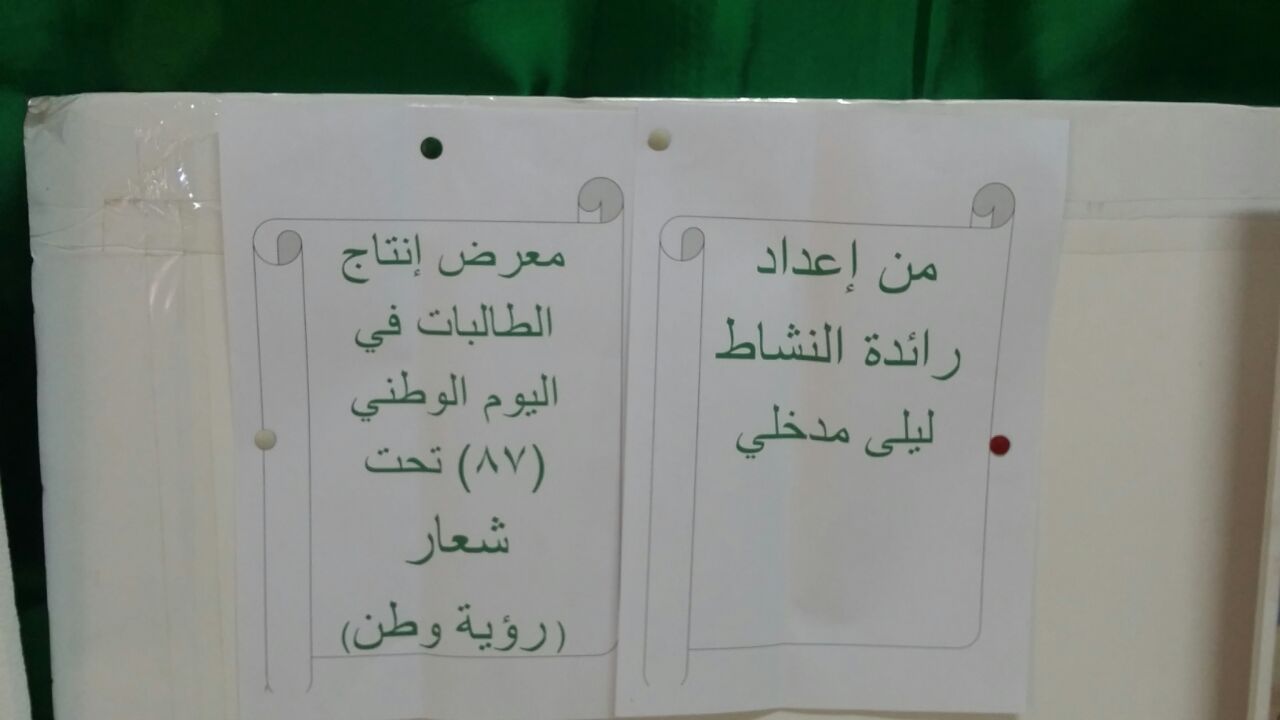 من إعداد
رائدة النشاط
ليلى مدخلي
معرض إنتاج
الطالبات في
اليوم الوطني
(٨٧) تحت
شعار
(رؤية وطن)